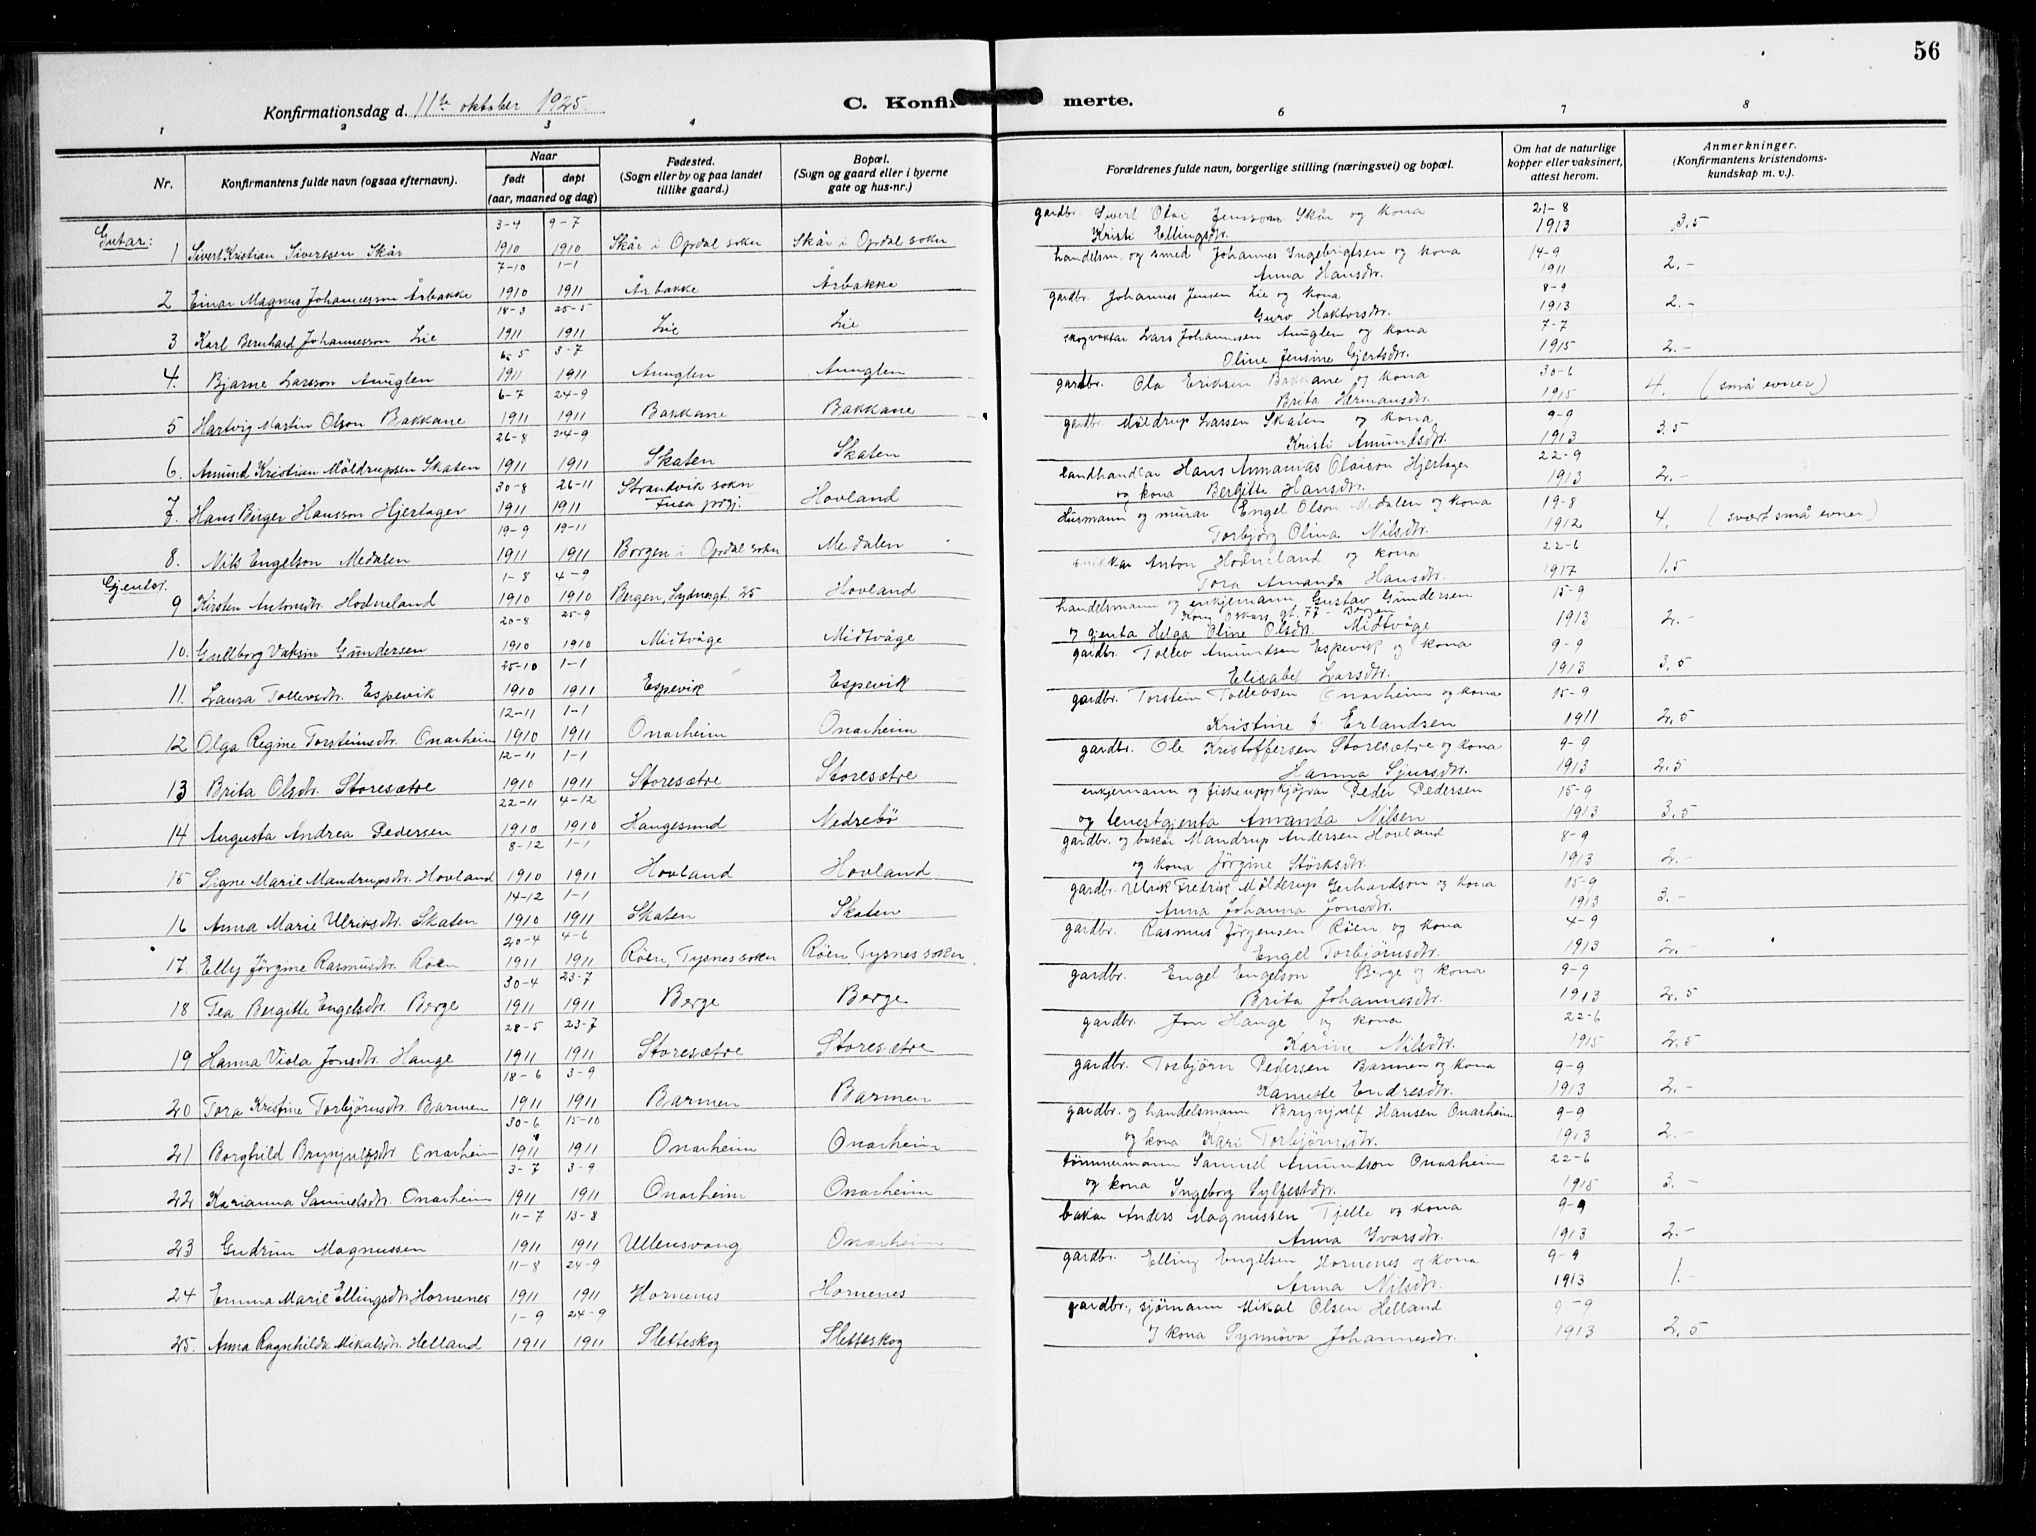 56
Konfirmationsdag d. 11te oktober 1925.
C. Konfir merte.
1 2 3 4 6 7 8
Nr. Konfirmantens fulde navn (ogsaa efternavn). Naar født døpt (aar, maaned og dag) Fødested. (Sogn eller by og paa landet tillike gaard.) Bopæl. (Sogn og gaard eller i byerne gate og hus-nr.) Forældrenes fulde navn, borgerlige stilling (næringsvei) og bopæl. Om hat de naturlige kopper eller vaksinert, attest herom. Anmerkninger. (Konfirmantens kristendoms-kundskap m. v.).
Gutar:
3-4 9-7 gardbr. Sivert Olai Jenssøn Skår og kona 21-8
1 Sivert Kristian Siverssen Skår 1910 1910 Skår i Opdal sokn Skår i Opdal sokn Kristi Ellingsdtr. 1913 3,5
7-10 1-1 handelsm. og smed Johannes Ingebrigtsen og kona 14-9
2 Einar Magnus Johannesson Årbakke 1910 1911 Årbakke Årbakke Anna Hansdtr. 1911 2.-
18-3 25-5 gardbr. Johannes Jensen Lie og kona 8-9
3 Karl Bernhard Johannesson Lie 1911 1911 Lie Lie Guro Haktorsdtr. 1913 2.-
6-5 3-7 skogvaktar Lars Johannesen Anuglen og kona 7-7
4. Bjarne Larsson Anuglen 1911 1911 Anuglen Anuglen Oline Jensine Gjertsdtr. 1915 2.-
6-7 24-9 gardbr. Ola Eriksen Bakkane og kona 30-6
5 Hartvig Martin Olson Bakkane 1911 1911 Bakkane Bakkane Brita Hermansdtr. 1915 4. (små evner)
26-8 24-9 gardbr. Möldrup Larsen Skaten og kona 9-9
6. Amund Kristian Möldrupsen Skaten 1911 1911 Skaten Skaten Kristi Amundsdtr. 1913 3.5
30-8 26-11 Strandvik sokn landhandlar Hans Annanias Olaison Hjertager 22-9
7. Hans Birger Hansson Hjertager 1911 1911 Fusa prgj. Hovland og kona Bergitte Hansdtr. 1913 2.-
19-9 19-11 Husmann og murar Engel Olson Medalen og kona 19-8
8. Nils Engelson Medalen 1911 1911 Borgen i Opdal sokn Medalen Torbjørg Olina Nilsdtr. 1912 4. (svært små evner)
Gjentor.
1-8 4-9 snikkar Anton Hodneland og kona 22-6
9 Kirsten Antonsdtr. Hodneland 1910 1910 Bergen, Sydnesgt. 25 Hovland Tora Amanda Hansdtr. 1917 1.5
20-8 25-9 handelsmann og enkjemann Gustav Gundersen 15-9
Kong Oskars gt. 77 - Bergen
10. Gudborg Gundersen 1910 1910 Midtvåge Midtvåge og gjenta Helga Oline Olsdtr. Midtvåge 1913 2.-
25-10 1-1 gardbr. Tollev Amundson Espevik og kona 9-9
11. Laura Tollevsdtr. Espevik 1910 1911 Espevik Espevik Elisabet Larsdtr. 1913 3,5
12-11 1-1 gardbr. Torstein Tollevsen Onarheim og kona 15-9
12 Olga Regine Torsteinsdtr. Onarheim 1910 1911 Onarheim Onarheim Kristine f. Erlandsen 1911 2,5
12-11 1-1 gardbr. Ole Kristoffersen Storesætre og kona 9-9
13 Brita Olsdtr. Storesætre 1910 1911 Storesætre Storesætre Hanna Sjursdtr. 1913 2,5
22-11 4-12 enkjemann og fiskeuppkjøpar Peder Pedersen 15-9
14 Augusta Andrea Pedersen 1910 1910 Haugesund Nedrebö og tenestgjenta Amanda Nilsen 1913 3,5
8-12 1-1 gardbr. og bakar Mandrup Andersen Hovland 8-9
15 Signe Marie Mandrupsdtr. Hovland 1910 1911 Hovland Hovland og kona Jörgine Störksdtr. 1913 2.-
14-12 1-1 gardbr. Ulrik Fredrik Mölderup Gerhardson og kona 15-9
16 Anna Marie Ulriksdtr. Skaten 1910 1911 Skaten Skaten Anna Johanna Jonsdtr. 1913 3.-
20-4 4-6 gardbr. Rasmus Jörgensen Röen og kona 4-9
17. Elly Jörgine Rasmusdtr. Röen 1911 1911 Röen, Tysnes sokn Röen, Tysnes sokn. Engel Torbjörnsdtr. 1913 2.-
30-4 23-7 gardbr. Engel Engelson Berge og kona 9-9
18 Tea Bergitte Engelsdtr. Berge 1911 1911 Berge Berge Brita Johannesdtr. 1913 2,5
28-5 23-7 gardbr. Jon Hauge og kona 22-6
19 Hanna Viola Jonsdtr. Hauge 1911 1911 Storesætre Storesætre Karine Nilsdtr. 1915 2,5
18-6 3-9 gardbr. Torbjörn Pedersen Barmen og kona 9-9
20 Tora Kristine Torbjörnsdtr. Barmen 1911 1911 Barmen Barmen Kanutte Endresdtr. 1913 2.-
30-6 15-10 gardbr. og handelsmann Brynjulf Hansen Onarheim 9-9
21 Borghild Brynjulfsdtr Onarheim 1911 1911 Onarheim Onarheim og kona Kari Torbjörnsdtr. 1913 2.-
3-7 3-9 tömmermann Samuel Amundson Onarheim 22-6
22 Karianna Samuelsdtr. Onarheim 1911 1911 Onarheim Onarheim og kona Ingeborg Sylfestdtr. 1915 3.-
11-7 13-8 bakar Anders Magnussen Tjelle og kona 9-9
23 Gudrun Magnussen 1911 1911 Ullensvang Onarheim Anna Ivarsdtr. 1913 2.-
11-8 24-9 gardbr. Elling Engelsen Hornenes og kona 9-9
24 Emma Marie Ellingsdtr. Hornenes 1911 1911 Hornenes Hornenes Anna Nilsdtr. 1913 1.-
1-9 24-9 gardbr., sjömann Mikal Olsen Helland 9-9
25. Anna Ragnhilda Mikalsdtr. Helland 1911 1911 Sletteskog Sletteskog kona Synnöva Johannesdtr. 1913 2,5